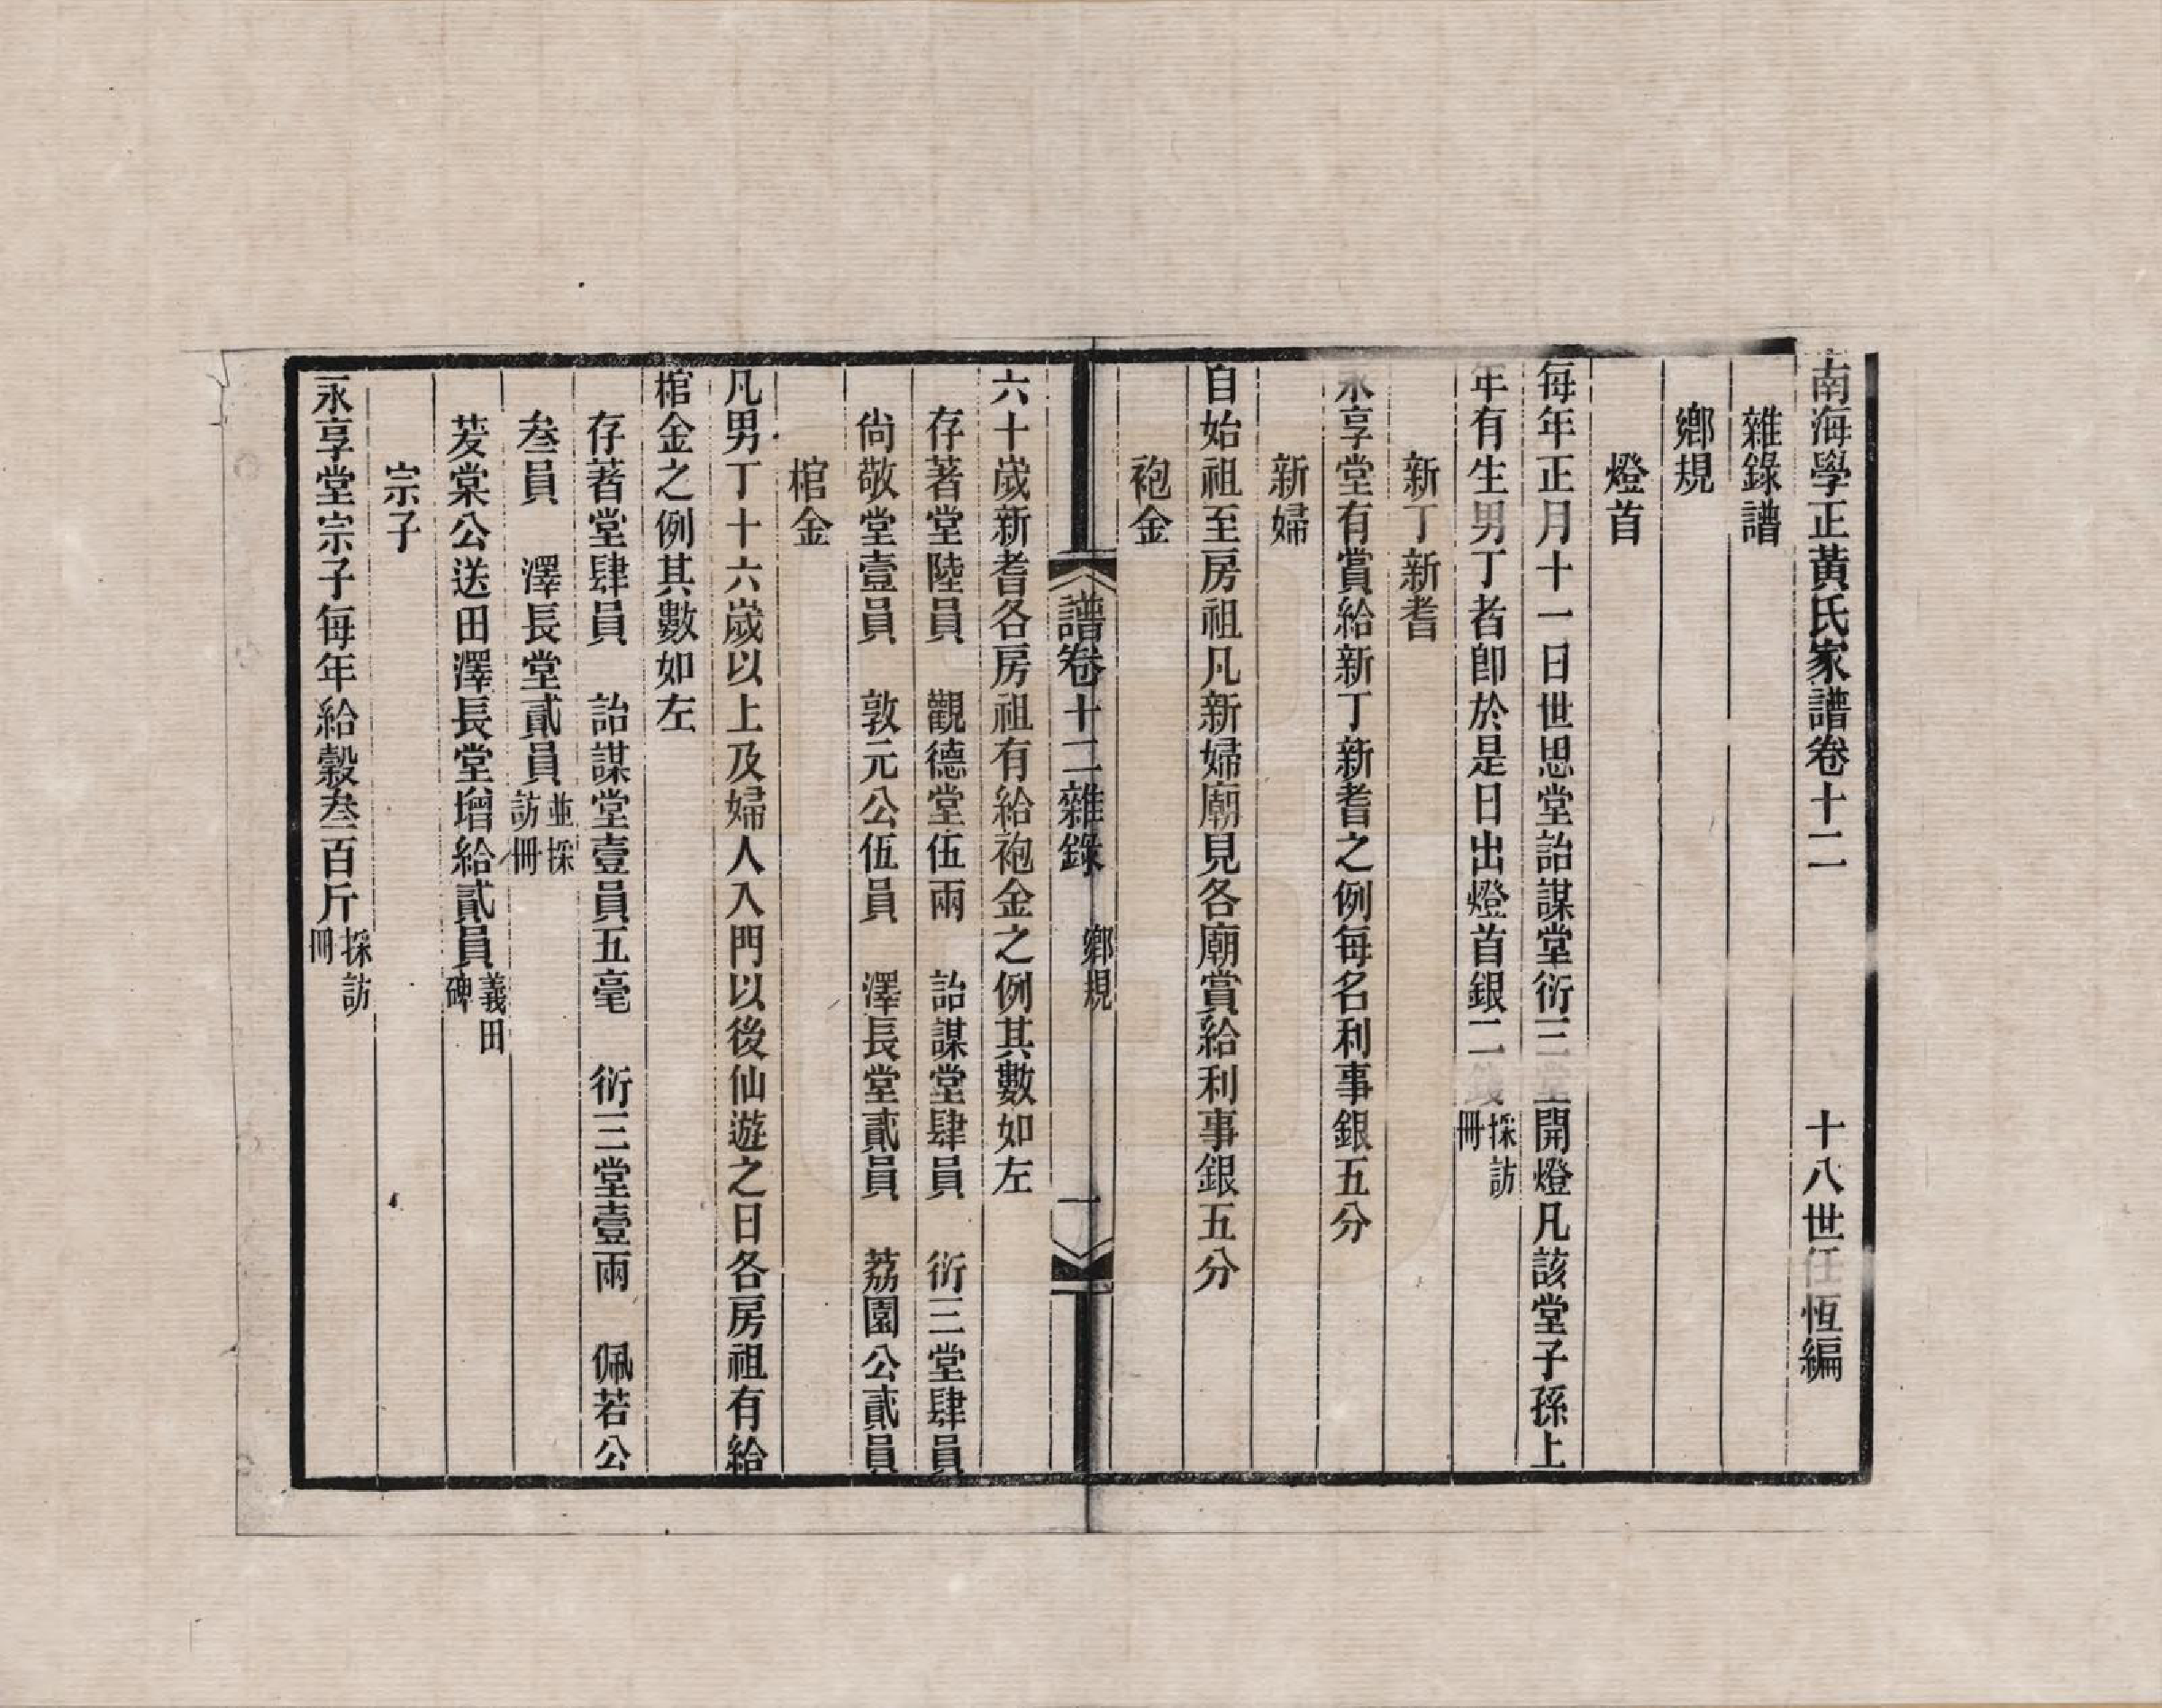 南海學正黃氏家譜卷十二　十八世任恆編
雜錄譜
鄉規
燈首
每年正月十一日世思堂詒謀堂衍三堂開燈凡該堂子孫上
年有生男丁者卽於是日出燈首銀二錢採訪冊
新丁新耆
永享堂有賞給新丁新耆之例每名利事銀五分
新婦
自始祖至房祖凡新婦廟見各廟賞給利事銀五分
袍金
譜卷十二雜錄　鄉規　一
六十歲新耆各房祖有給袍金之例其數如左
存著堂陸員　觀德堂伍兩　詒謀堂肆員　衍三堂肆員
尙敬堂壹員　敦元公伍員　澤長堂貳員　荔園公貳員
棺金
凡男丁十六歲以上及婦人入門以後仙遊之日各房祖有給
棺金之例其數如左
存著堂肆員　詒謀堂壹員五毫　衍三堂壹兩　佩若公
叁員　澤長堂貳員並採訪冊
茇棠公送田澤長堂增給貳員義田碑
宗子
永享堂宗子每年給穀叁百斤採訪冊